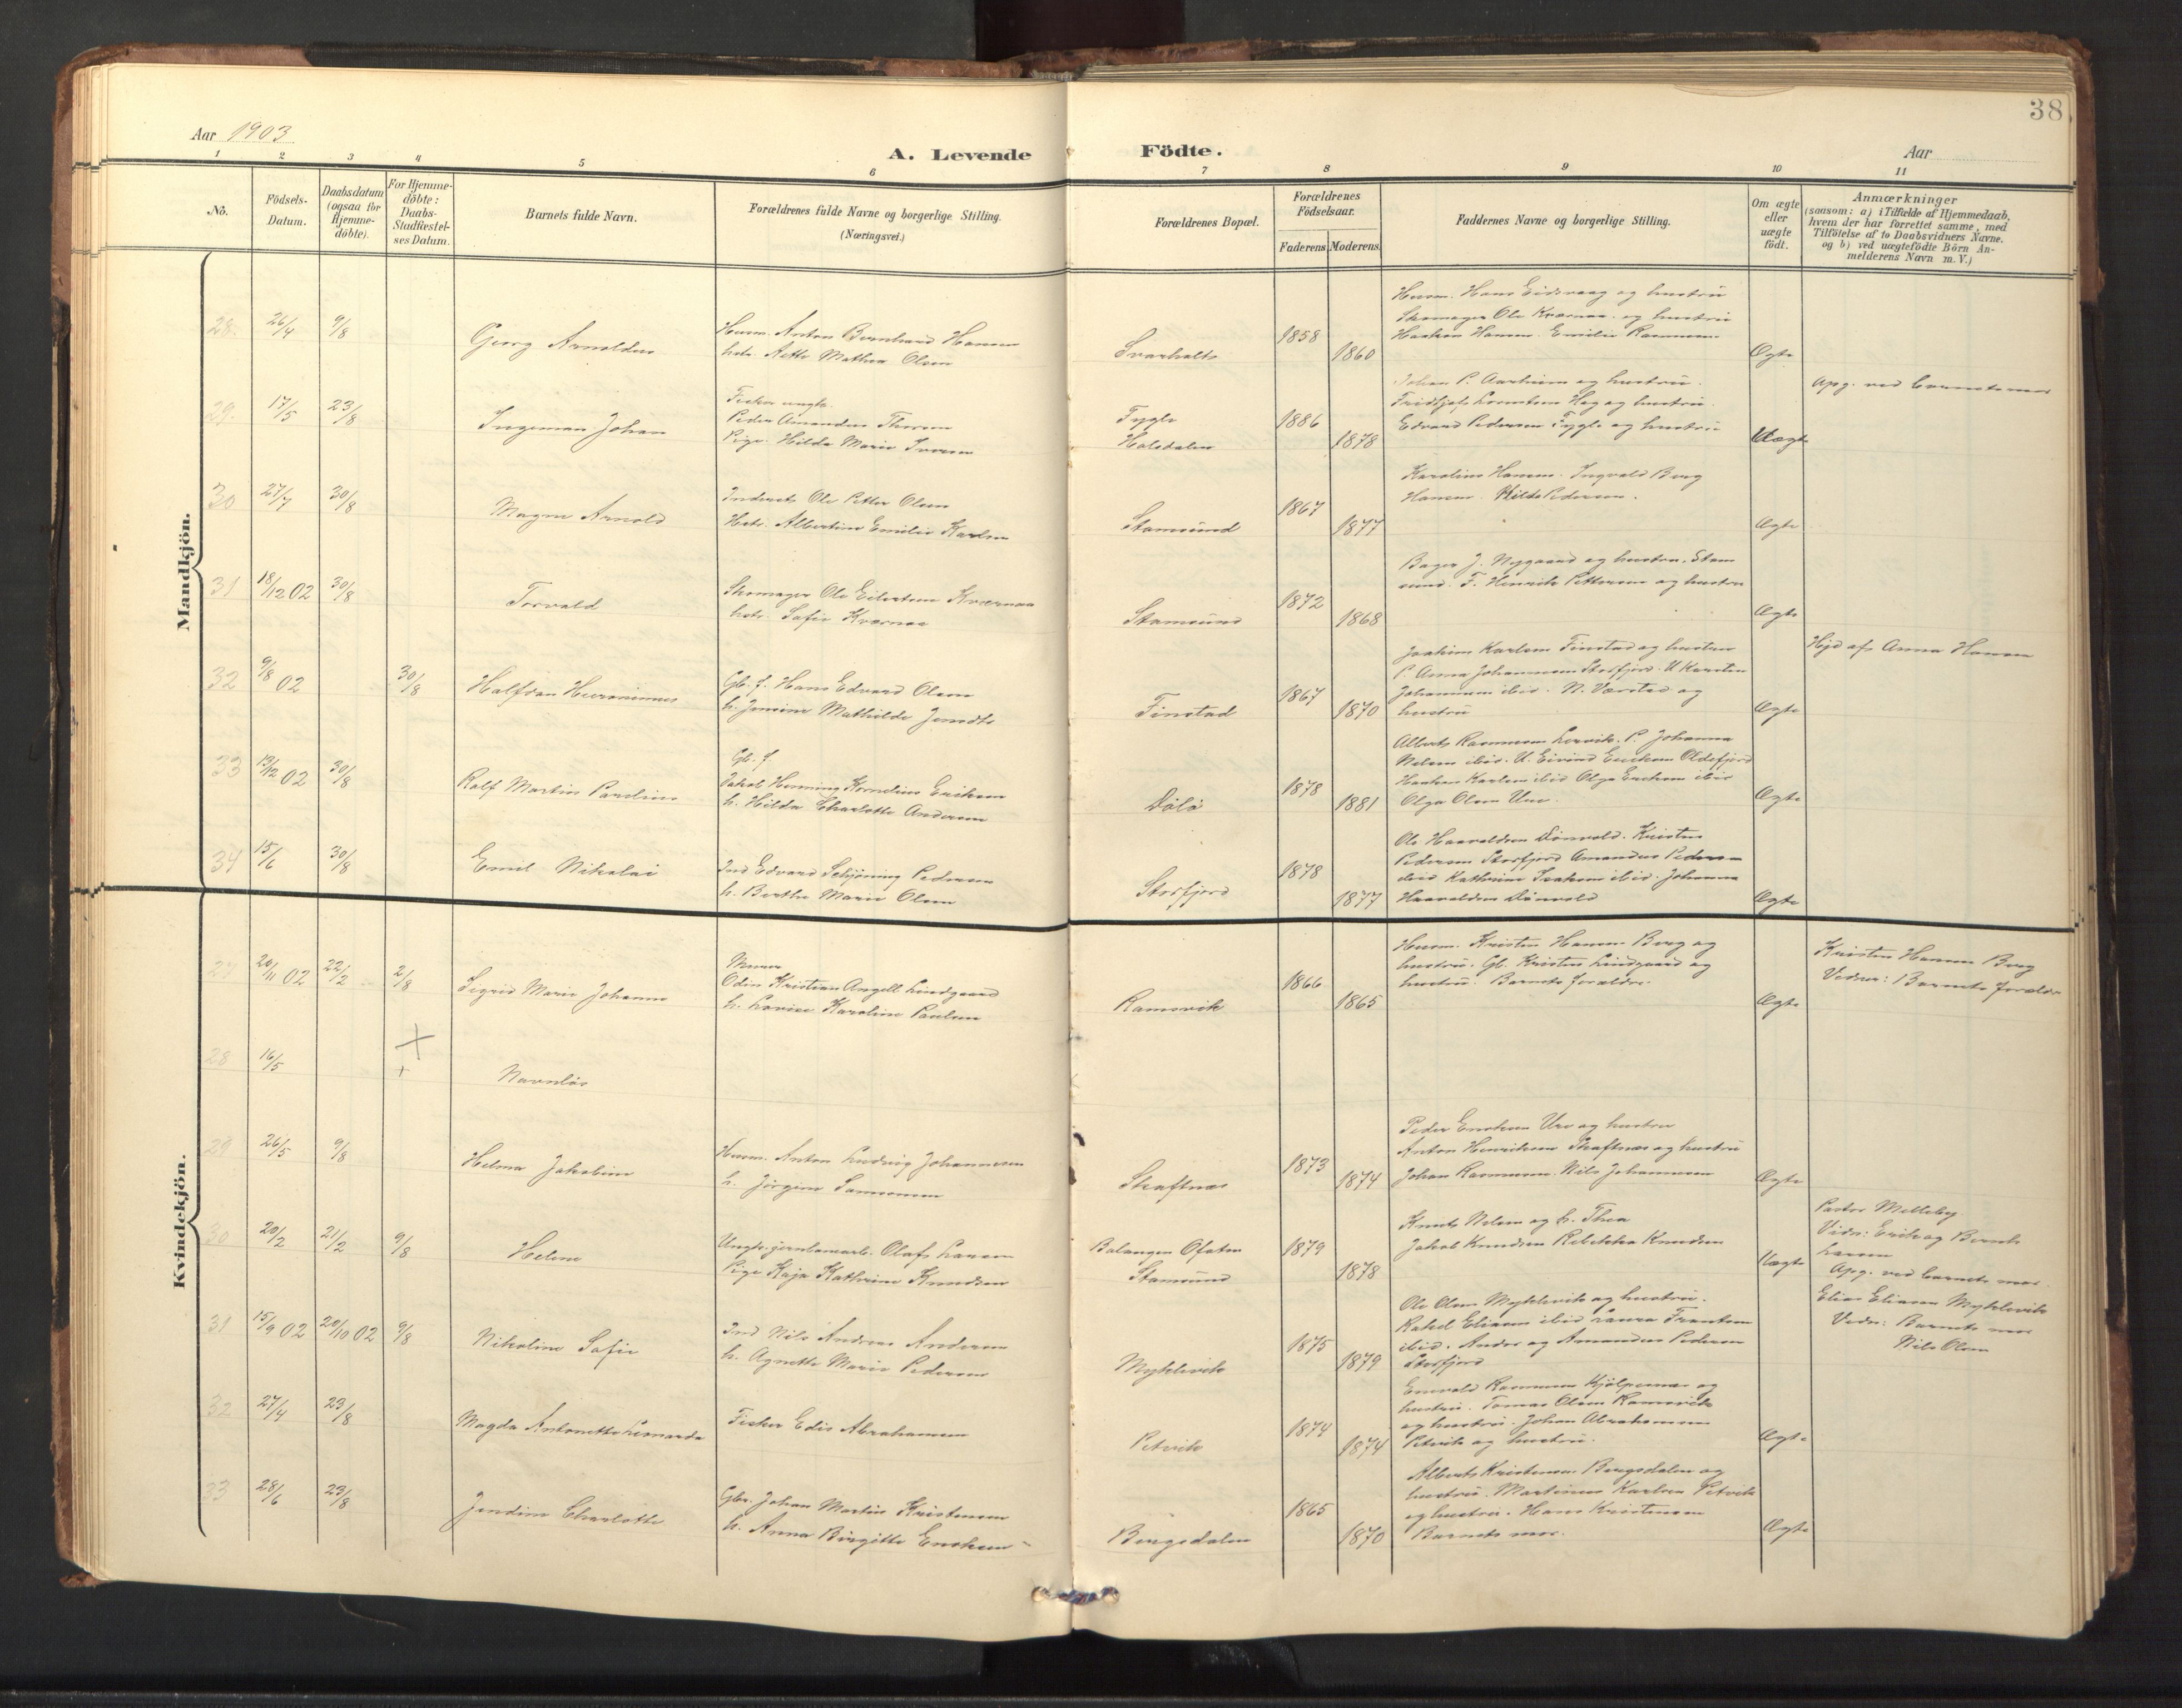 38
Aar 1903
A. Levende Födte.
Aar
1 2 3 4 5 6 7 8 9 10 11
No.
Födsels-Datum.
Daabsdatum (ogsaa for Hjemme-döbte).
For Hjemme-döbte: Daabs-Stadfæstel-ses Datum.
Barnets fulde Navn.
Forældrenes fulde Navne og borgerlige Stilling.
(Næringsvei.)
Forældrenes Bopæl.
Forældrenes Födselsaar.
Faderens. Moderens.
Faddernes Navne og borgerlige Stilling.
Om ægte eller uægte födt.
Anmærkninger
(saasom: a) i Tilfælde af Hjemmedaab,
hvem der har forrettet samme, med
Tilföielse af to Daabsvidners Navne.
og b) ved uægtefödte Börn An-
melderens Navn m. V.)
Mandkjön.
28. 26/4 9/8
Georg Arnoldus
Husm. Anton Bernhard Hansen
hstr. Mathea Olsen
Svarholt
1858
1860
Husm. Hans Eidsvaag og hustru
Skomager Ole Kværnaa og hustru
Haakon Hansen. Emilie Rasmussen
Ægte
29. 17/5 23/8
Ingeman Johan
Fisker ungk.
Peder Amandus Thoresen
Pige Hilda Marie Iversen
Tygle
Holsdalen
1886
1878
Johan P. Aarheim og hustru.
Fridtjof Lorentsen Hag og hustru.
Edvard Pedersen Tygle og hustru
Uægte
Apg. ved barnets mor
30 27/7 30/8
Magne Arnold
Inderst Ole Petter Olsen
Hstr. Albertine Emilie Karlsen
Stamsund
1867
1877
Karoline Hansen. Ingvald Berg
Hansen. Hilda Pedersen.
Ægte
31 18/12 02 30/8
Torvald
Skomager Ole Eilertsen Kværnaa
hstr. Sofie Kværnaa
Stamsund
1872
1868
Bager J. Nygaard og hustru, Stam
sund. F. Henrik Pettersen og hustru
Ægte
32 9/8 02 30/8
Halfdan Hieronimus
Gb. f. Hans Edvard Olsen
h. Jensine Mathilde
Finstad
1867
1870
Joakim Karlsen Finstad og hustru
P. Anna Johannesen Storfjord. U. Karsten
Johannesen ibid. N. Værstad og
hustru
Ægte
Hjd af Anna Hansen
33 13/12 02 30/8
Rolf Martin Paulius
Gb. f.
Jakob Henning Kornelius Eriksen
h. Hilda Charlotte Andersen
1878
1881
Albert Rasmussen P. Johanna
Nilsen ibid. U. Eivind Eriksen Oldefjord
Haakon Karlsen ibid Olga Eriksen ibid
Olga Olsen Ure.
Ægte
34 15/6 30/8
Emil Nikolai
Ind Edvard Schjöning Pedersen
h. Berthe Marie Olsen
Storfjord
1878
1877
Ole Haavaldsen Dönvold. Kristen
Pedersen Storfjord Amandus Pedersen
ibid Kathrine Isaksen ibid. Johanna
Haavaldsen Dönvold
Ægte
Kvindekjön.
27 20/11 02 22/2 2/8
Sigrid Marie Johanne
Murer
Odin Kristian Angell Lindgaard
h. Lovise Karoline Paulsen
Ramsvik
1866
1865
Husm. Kristen Hansen Berg og
hustru. Gb. Kristen Lindgaard og
hustru. Barnets foreldre.
Ægte
Kristen Hansen Berg
Vidner: Barnets foreldre
28 16/5 +
+
Navnlös
29 26/5 9/8
Helma Jakobine
Husm. Anton Ludvig Johannesen
h. Jörgine Samsonsen
Skaftnes
1873
1874
Peder Eriksen Ure og hustru
Anton Henriksen Skaftnes og hustru
Johan Rasmussen. Nils Johannesen
Ægte
30 20/2 21/2 9/8
Helene
Ungk. jernbanearb. Olaf Larsen
Pige Kaja Kathrine Knudsen
Balangen Ofoten
Stamsund
1879
1878
Knut Nilsen og h. Thea
Jakob Knudsen Rebekka Knudsen
Uægte
Pastor Melleby
Vidn: Erik og Berntsen
Larsen
Apg. ved barnets mor.
31 15/9 02 20/10 02 9/8
Nikoline Sofie
Ind Nils Andreas Andersen
h. Agnethe Marie Pedersen
Myklevik
1875
1879
Ole Olsen Myklevik og hustru.
Rakel Eliasen ibid Laura Frantsen
ibid. Andor og Amandus Pedersen
Storfjord
Elias Eliasen Myklevik
Vidn: Barnets mor
Nils Olsen
32 27/4 23/8
Magda Antonette Leonarda
Fisker Edis Abrahamsen
Petvik
1874
1874
Enevald Rasmussen Kjölpenes og
hustru. Tomas Olsen Ramsvik
og hustru. Johan Abrahamsen
Petvik og hustru.
Ægte
33 28/6 23/8
Jendine Charlotte
Gbr. Johan Martin Kristensen
h. Anna Birgitte Eriksen
Bergsdalen
1865
1870
Albert Kristensen Bergsdalen og
hustru. Martinus Karlsen Petvik
og hustru. Hans Kristensen
Barnets mor.
Ægte